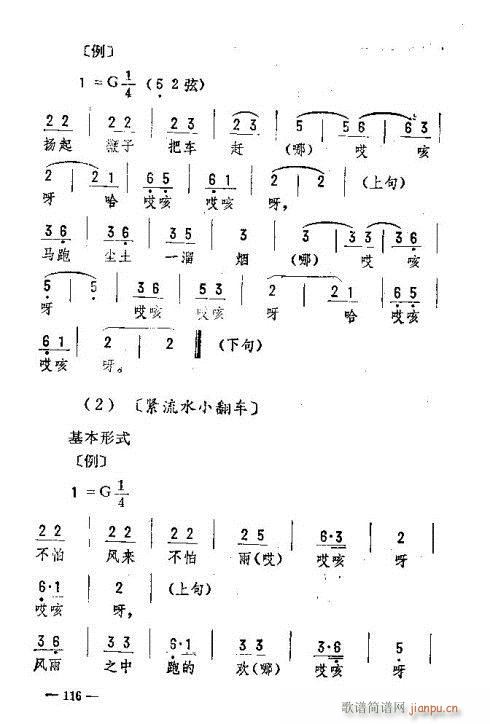 〔例〕
1=G 1/4 (5 2弦)
2 2 | 2 2 | 2 3 | 2 3 | 5 | 5 6 | 6 3 |
扬起 鞭子 把车 赶 (哪) 哎 咳
2 | 2 1 | 6 5 | 6 5 | 2 | 2 | (上句)
呀 哈 哎咳 哎咳 呀,
3 6 | 3 6 | 5 5 | 3 6 | 5 | 3 3 | 3 6 |
马跑 尘土 一溜 烟 (哪) 哎 咳
5 | 5 | 3 6 | 3 6 | 2 | 2 1 | 6 5 |
呀 哎咳 哎咳 呀 哈 哎咳
6 1 | 2 | 2 ‖ (下句)
哎咳 呀。
(2) 〔紧流水小翻车〕
基本形式
〔例〕
1=G 1/4
2 2 | 2 2 | 2 2 | 2 5 | 6·3 | 2 |
不怕 风来 不怕 雨(哎) 哎咳 呀
6·1 | 2 | (上句)
哎咳 呀,
3 6 | 3 3 | 6·1 | 3 3 | 3·6 | 5 |
风雨 之中 跑的 欢(哪) 哎咳 呀
— 116 —
歌谱简谱网
jianpu.cn